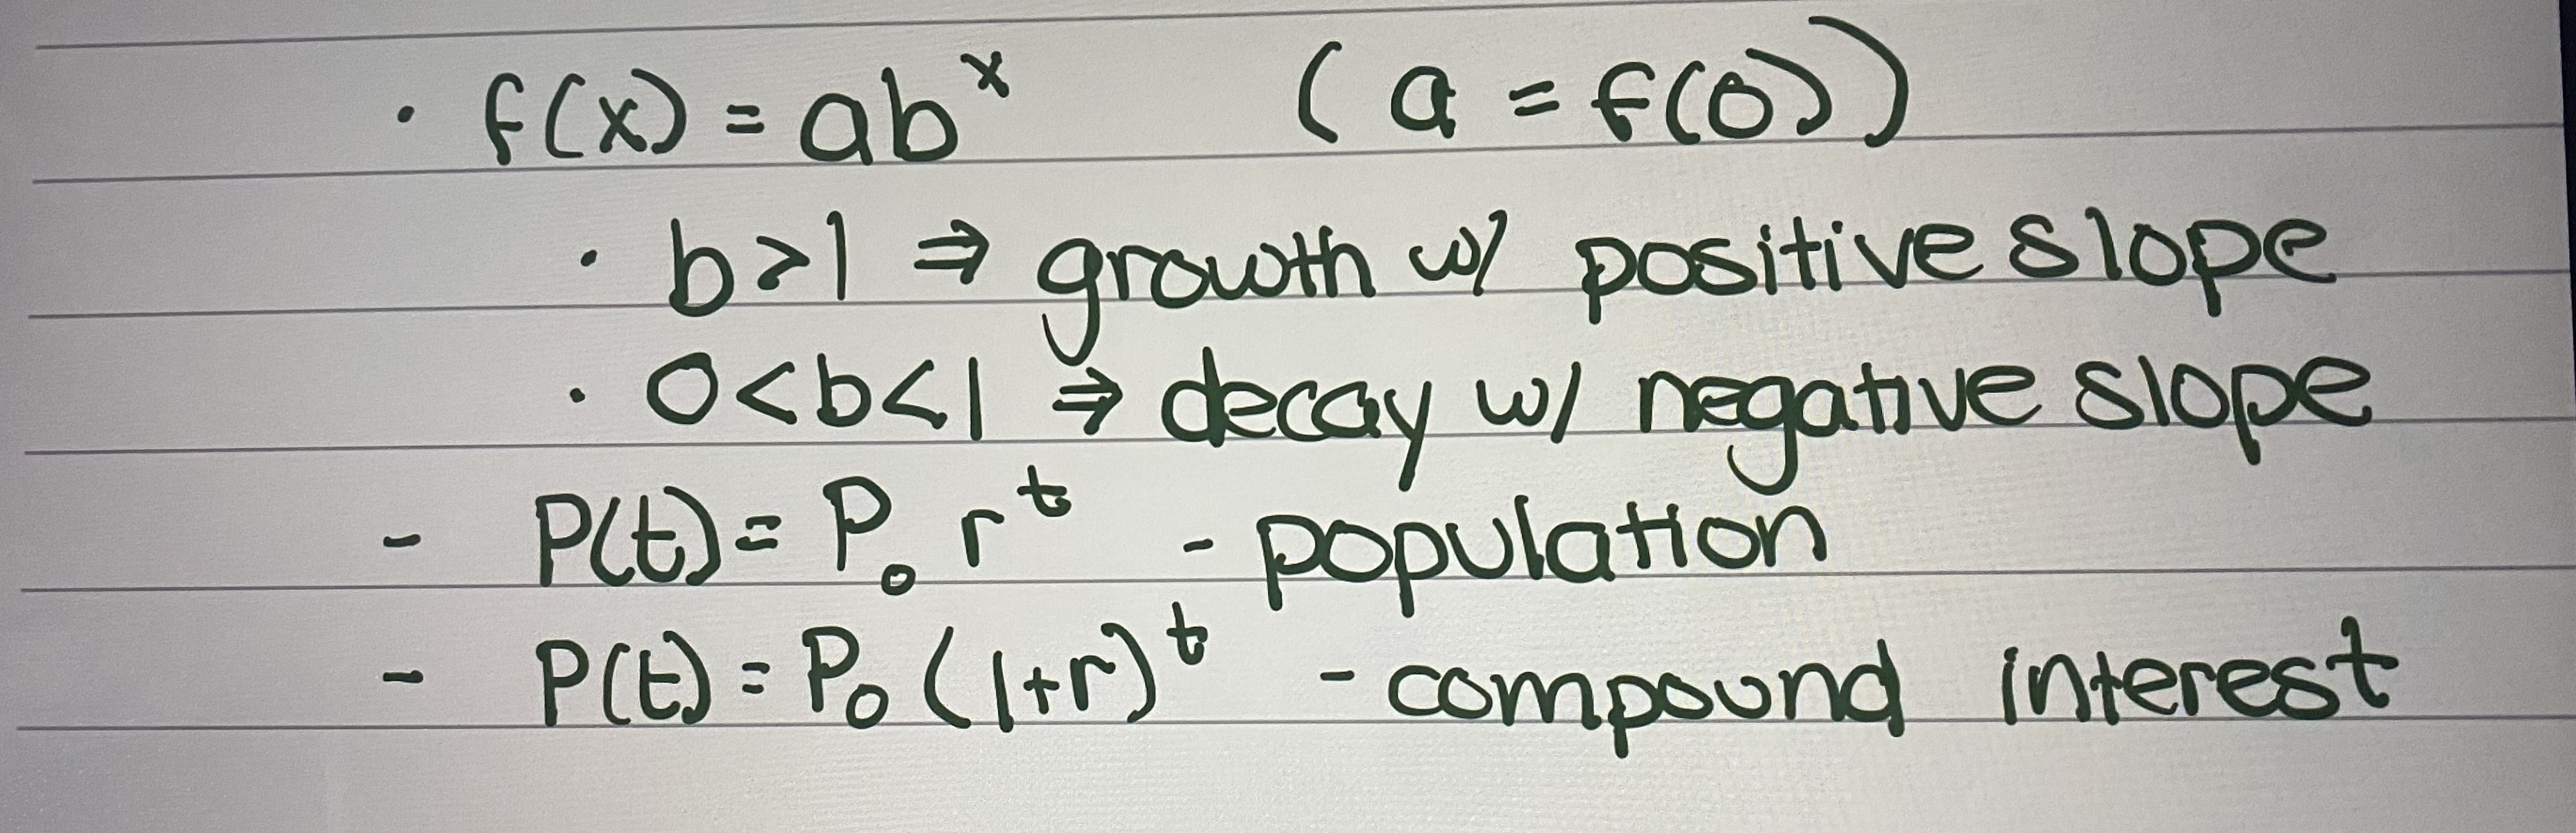 · f(x) = abˣ (a = f(0))
· b>1 ⇒ growth w/ positive slope
· 0<b<1 ⇒ decay w/ negative slope
- P(t) = P₀ rᵗ - population
- P(t) = P₀ (1+r)ᵗ - compound interest